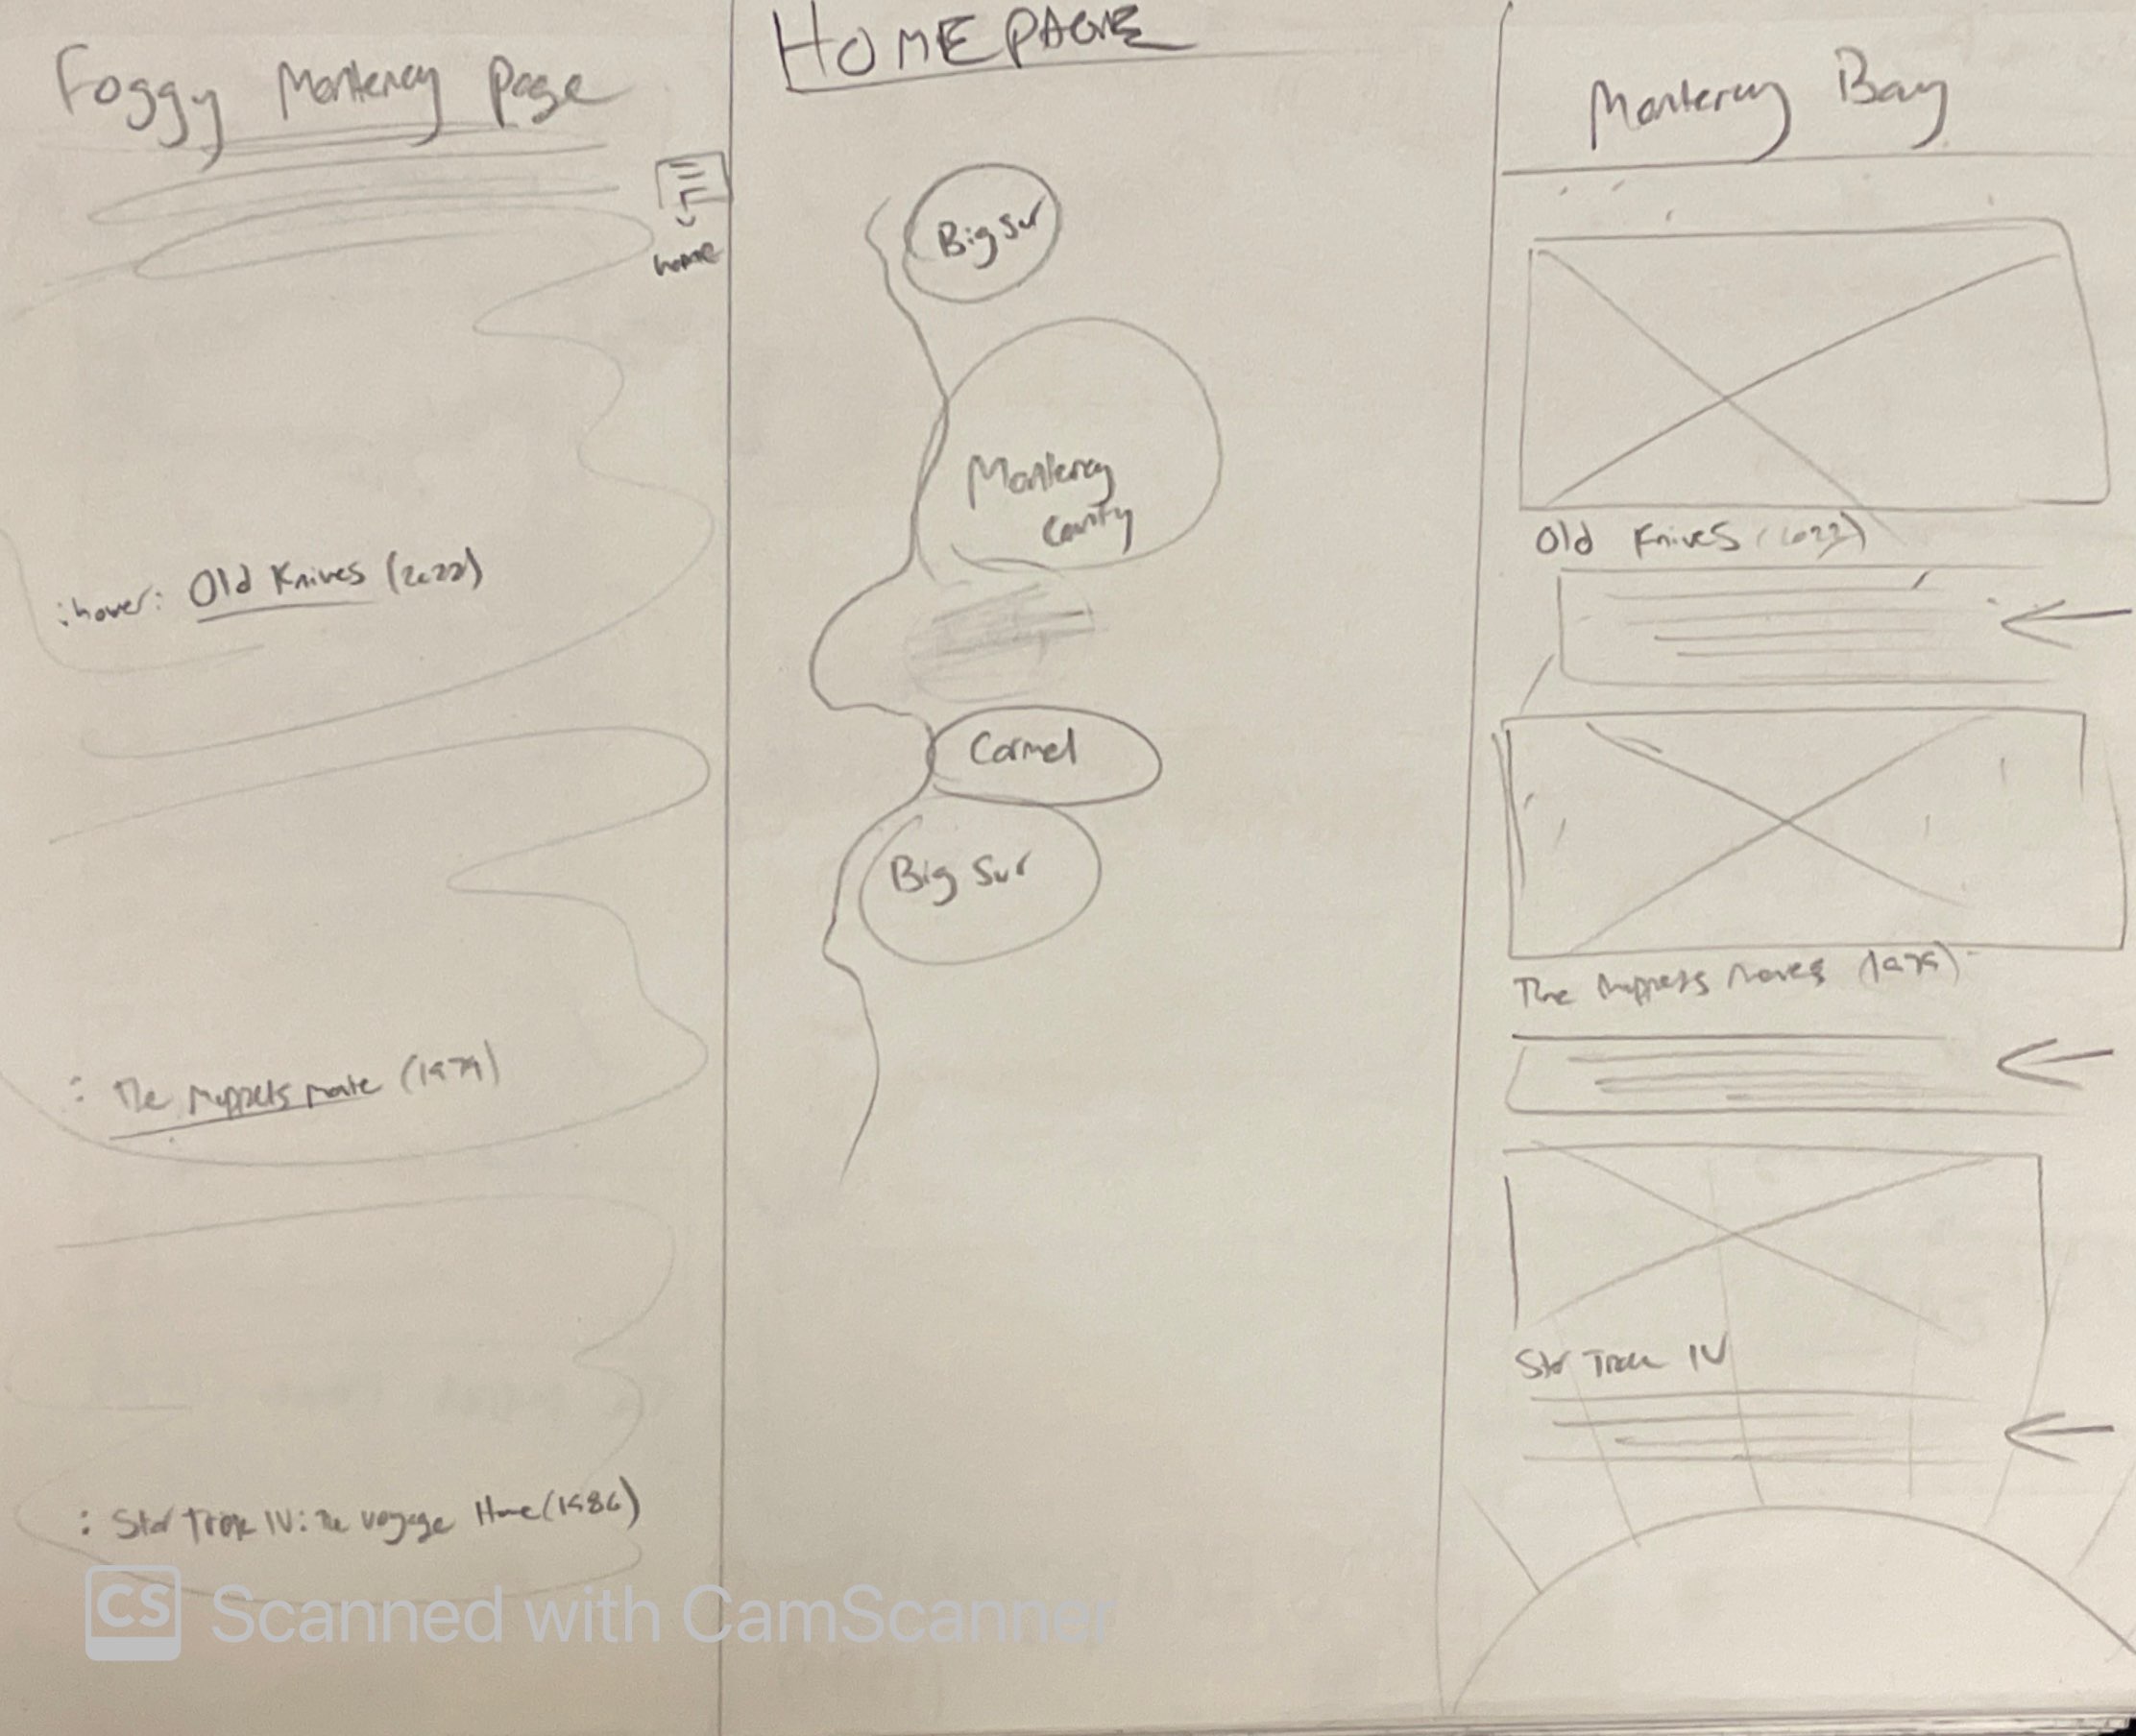 Foggy Monterey Page
home
:hover: Old Knives (2022)
: The Muppets Movie (1979)
: Star Trek IV: The Voyage Home (1986)
HOMEPAGE
Big Sur
Monterey
County
Carmel
Big Sur
Monterey Bay
Old Knives (2022)
The Muppets Movies (1979)
Star Trek IV
CS Scanned with CamScanner